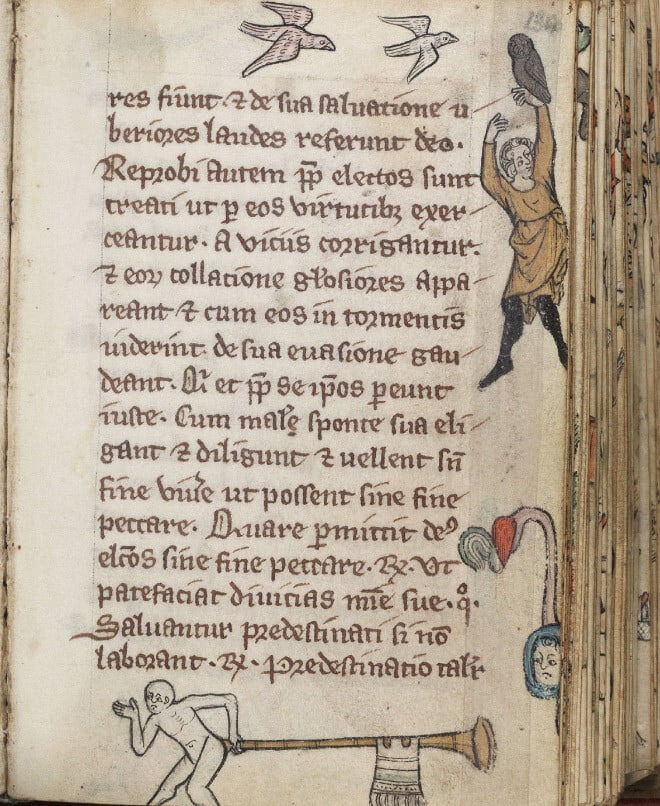 res fiunt. ⁊ de sua saluatione u
beriores laudes referunt deo.
Reprobi autem pp̄ electos sunt
creati ut ꝑ eos virtutibꝫ exer
ceantur. A viciis corrigantur.
⁊ eoꝝ collatione gl̓osiores appa
reant ⁊ cum eos in tormentis
uiderint. de sua euasione gau
deant. Qi et pp̄ se ip̄os ꝑeunt
iuste. Cum male sponte sua eli
gant ⁊ diligunt ⁊ uellent sn̄
fine viue᷒ ut possent sine fine
peccare. Quare ꝑmittit deꝰ
elc̄os sine fine peccare. ꝶ. Ut
patefaciat diuicias mīe sue. q̊.
Saluantur predestinati si nō
laborant. ꝶ. Predestinatio tali᷒